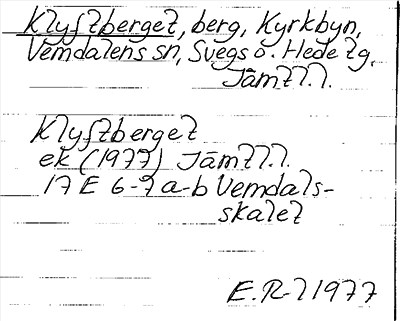 Klyftberget, berg, Kyrkbyn,
Vemdalens sn, Svegs o. Hede tg,
Jämtl.l.
Klyftberget
ek (1977) Jämtl.l.
17 E 6-7 a-b Vemdals-
skalet
E.R-l 1977